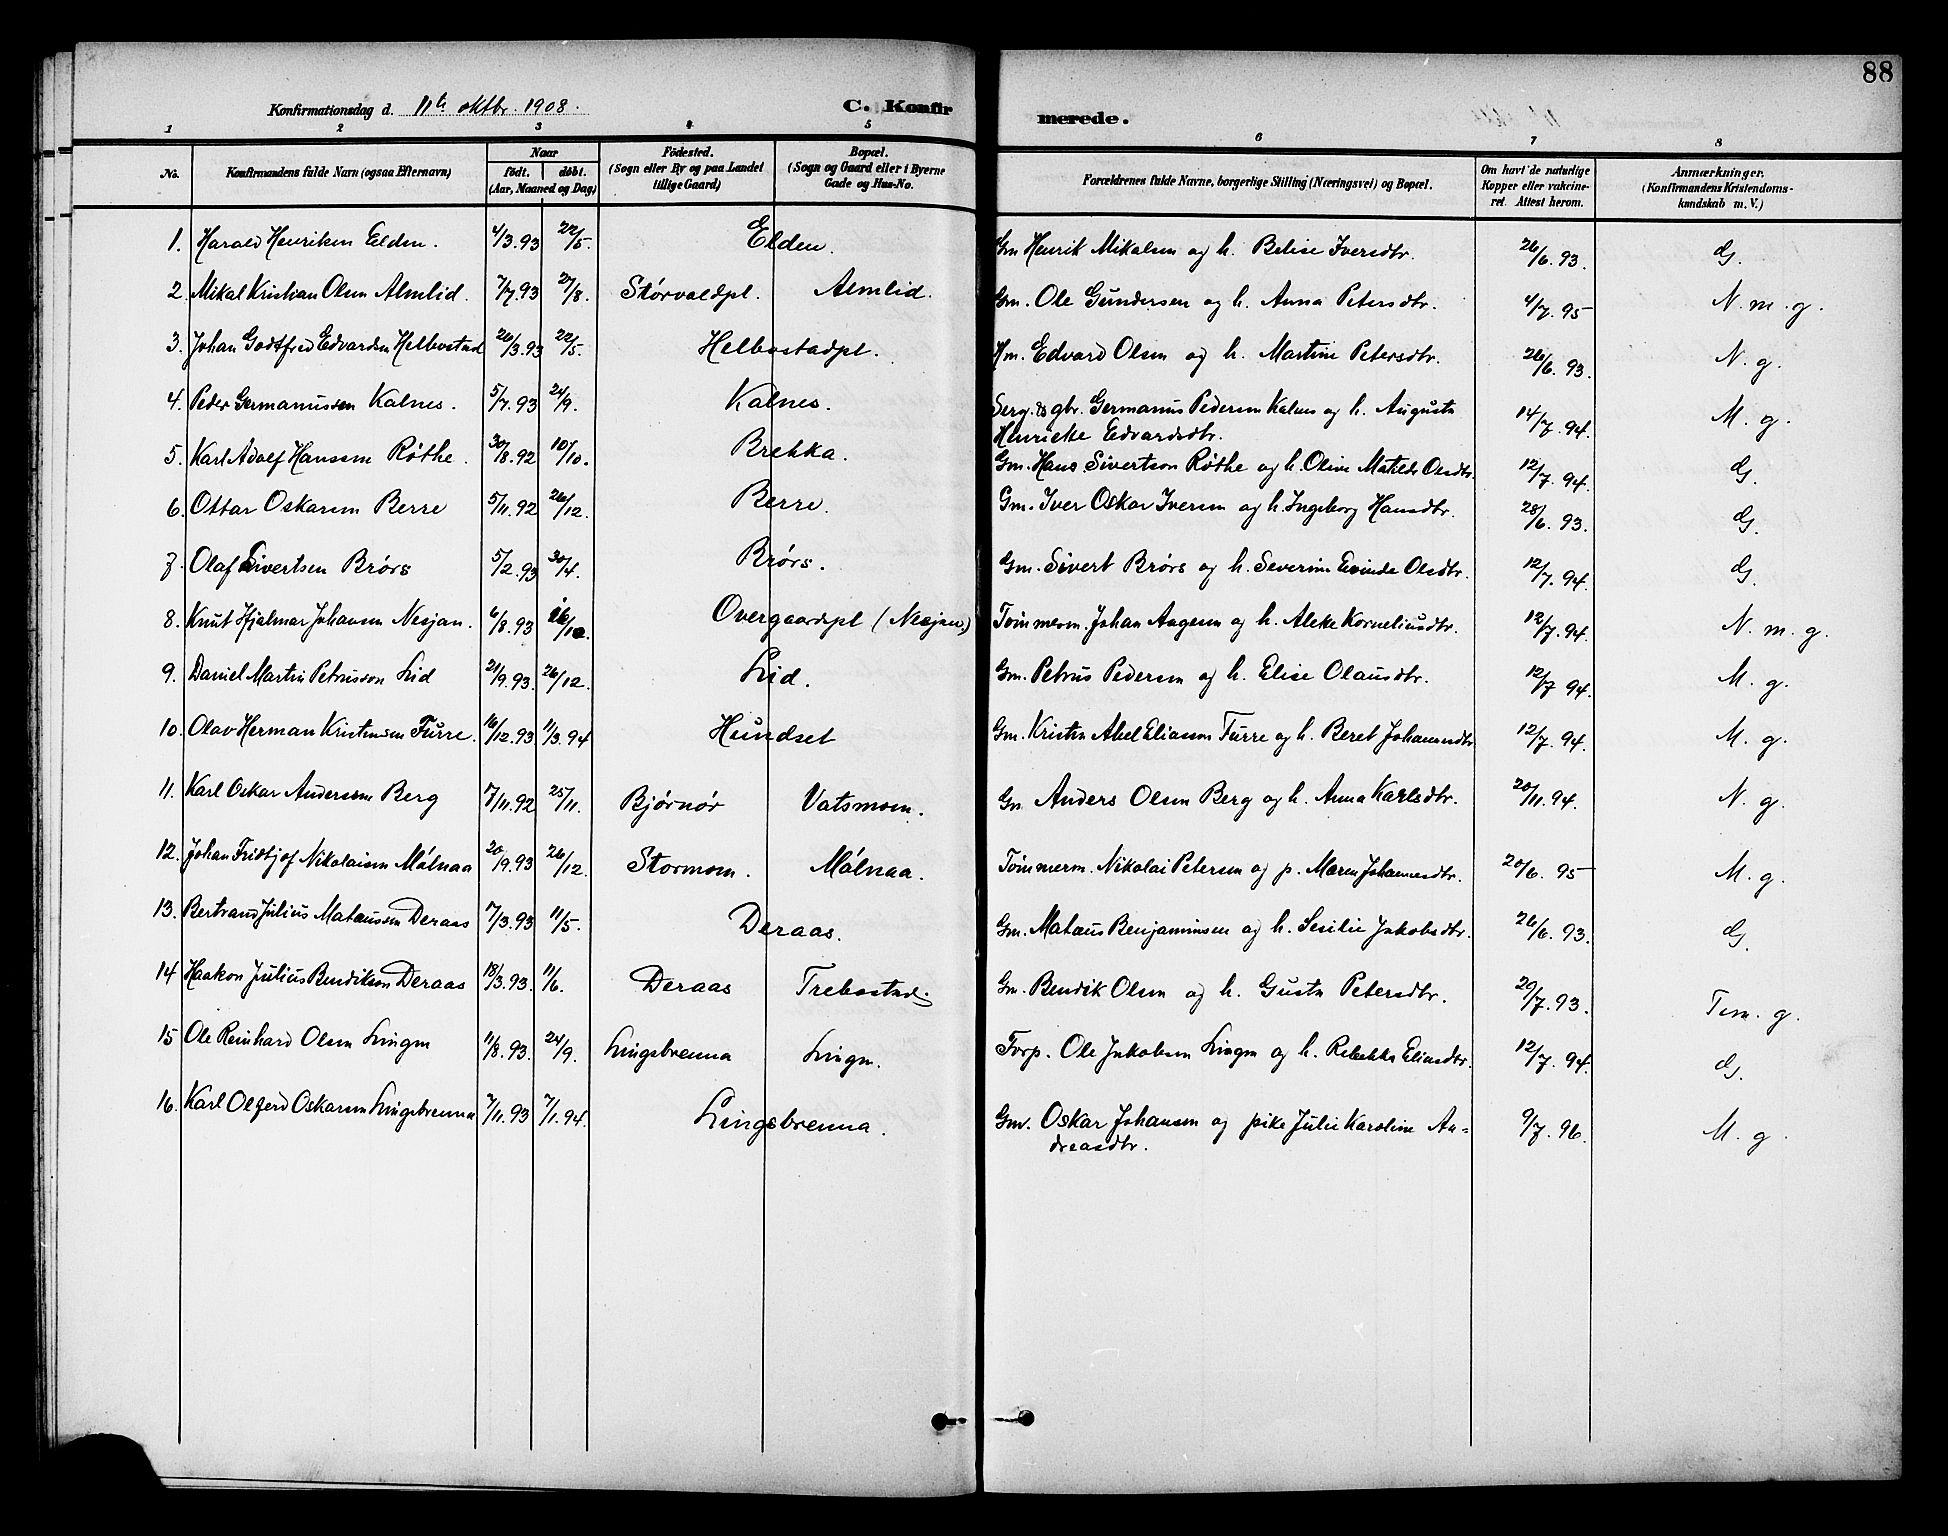 88
Konfirmationsdag d. 11te oktbr. 1908.
C. Konfirmerede.
1 2 3 4 5 6 7 8
No. Konfirmandens fulde Navn (ogsaa Efternavn) Naar født. døbt. (Aar, Maaned og Dag) Födested. (Sogn eller By og paa Landet tillige Gaard) Bopæl. (Sogn og Gaard eller i Byerne Gade og Hus-No. Forældrenes fulde Navne, borgerlige Stilling (Næringsvei) og Bopæl. Om havt de naturlige Kopper eller vakcineret. Attest herom. Anmærkninger. (Konfirmandens Kristendomskundskab m. V.)
1. Harald Henriksen Elden. 4/3.93 22/5. Elden. Gm Henrik Mikalsen og h. Belise Iversdtr. 26/6.93. G.
2. Mikal Kristian Olsen Almlid. 7/7.93 27/8. Størvoldpl. Almlid. Gm. Ole Gundersen og h. Anna Petersdtr. 4/7.95 N. m. g.
3. Johan Godtfred Edvardsen Helbostad 26/3.93 22/5. Helbostadpl. Hm. Edvard Olsen og h. Martine Petersdtr. 26/6.93. N. g.
4. Peder Germanussen Kalnes. 5/7.93 24/9. Kalnes. Serg. & gbr. Germanus Pedersen Kalnes og h. Augusta 14/7.94. M. g.
Henrieke Edvardsdtr.
5. Karl Adolf Hanssen Røthe. 30/8.92 10/10. Brekka. Gm. Hans Sivertson Røthe og h. Olive Matilde Olsdtr. 12/7.94. G.
6. Ottar Oskarsen Berre 5/11.92 26/12. Berre. Gm. Iver Oskar Iversen og h. Ingeborg Hansdtr. 28/6.93. G.
7. Olaf Sivertsen Brørs 5/2.93 30/4. Brørs. Gm. Sivert Brørs og h. Severine Olsdtr. 12/7.94. G.
8. Knut Hjalmar Johansen Nesjan. 6/8.93 Overgaardspl (Nesjan) Tømmerm. Johan Aagesen og h. Aleke Korneliusdtr. 12/7.94. N. m. g.
9. Daniel Martin Petrusson Lid 21/9.93. 26/12. Lid. Gm. Petrus Pedersen og h. Elise Olausdtr. 12/7 94. M. g.
10. Olav Herman Kristensen Furre. 16/12.93 11/3.94 Hundset Gm. Kristen Abel Eliassen Furre og h. Beret Johannesdtr 12/7.94. M. g.
11. Karl Oskar Anderssen Berg 7/11.92 25/11. Bjørnør Vatsmoen. Gm Anders Olsen Berg og h. Anna Karlsdtr. 20/11.94. N. g.
12. Johan Fridtjof Nikolaisen Mølnaa 20/9.93 26/12. Stormoen. Mølnaa. Tømmerm. Nikolai Petersen og p. Maren Johannesdtr. 20/6.95 M. g.
13. Bertrand Julius Matæussen Deraas 7/3.93 11/5. Deraas. Gm. Matæus Benjaminsen og h. Sesilie Jakobsdtr. 26/6.93. G.
14 Haakon Julius Bendikson Deraas 18/3.93. 11/6. Deraas Trebostad. Gm. Bendik Olsen og h. Gusta Petersdtr. 29/7.93. T.m. g.
15 Ole Reinhard Olsen Lingen 11/8.93. 24/9. Lingsbrenna Lingen. Forp. Ole Jakobsen Lingen og h. Rebekka Eliasdtr. 12/7.94. G.
16. Karl Olferd Oskarsen Lingsbrenna 7/11.93 7/1.94. Lingsbrenna. Gm. Oskar Johansen og pike Julie Karoline An= 9/7.96. M. g.
dreasdtr.